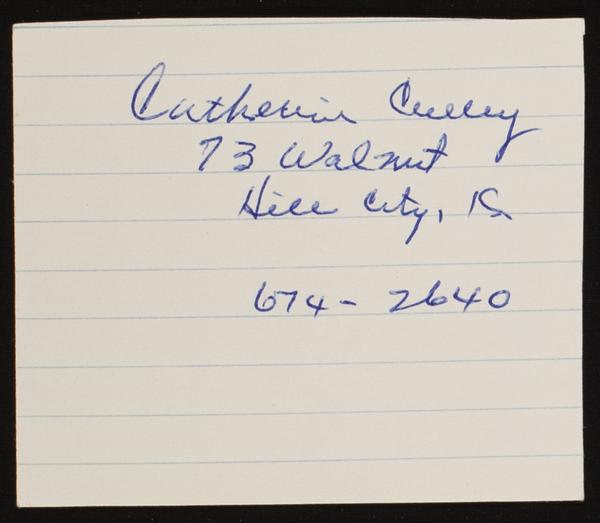 Catherine Culley
73 Walnut
Hill City, Ks
674-2640